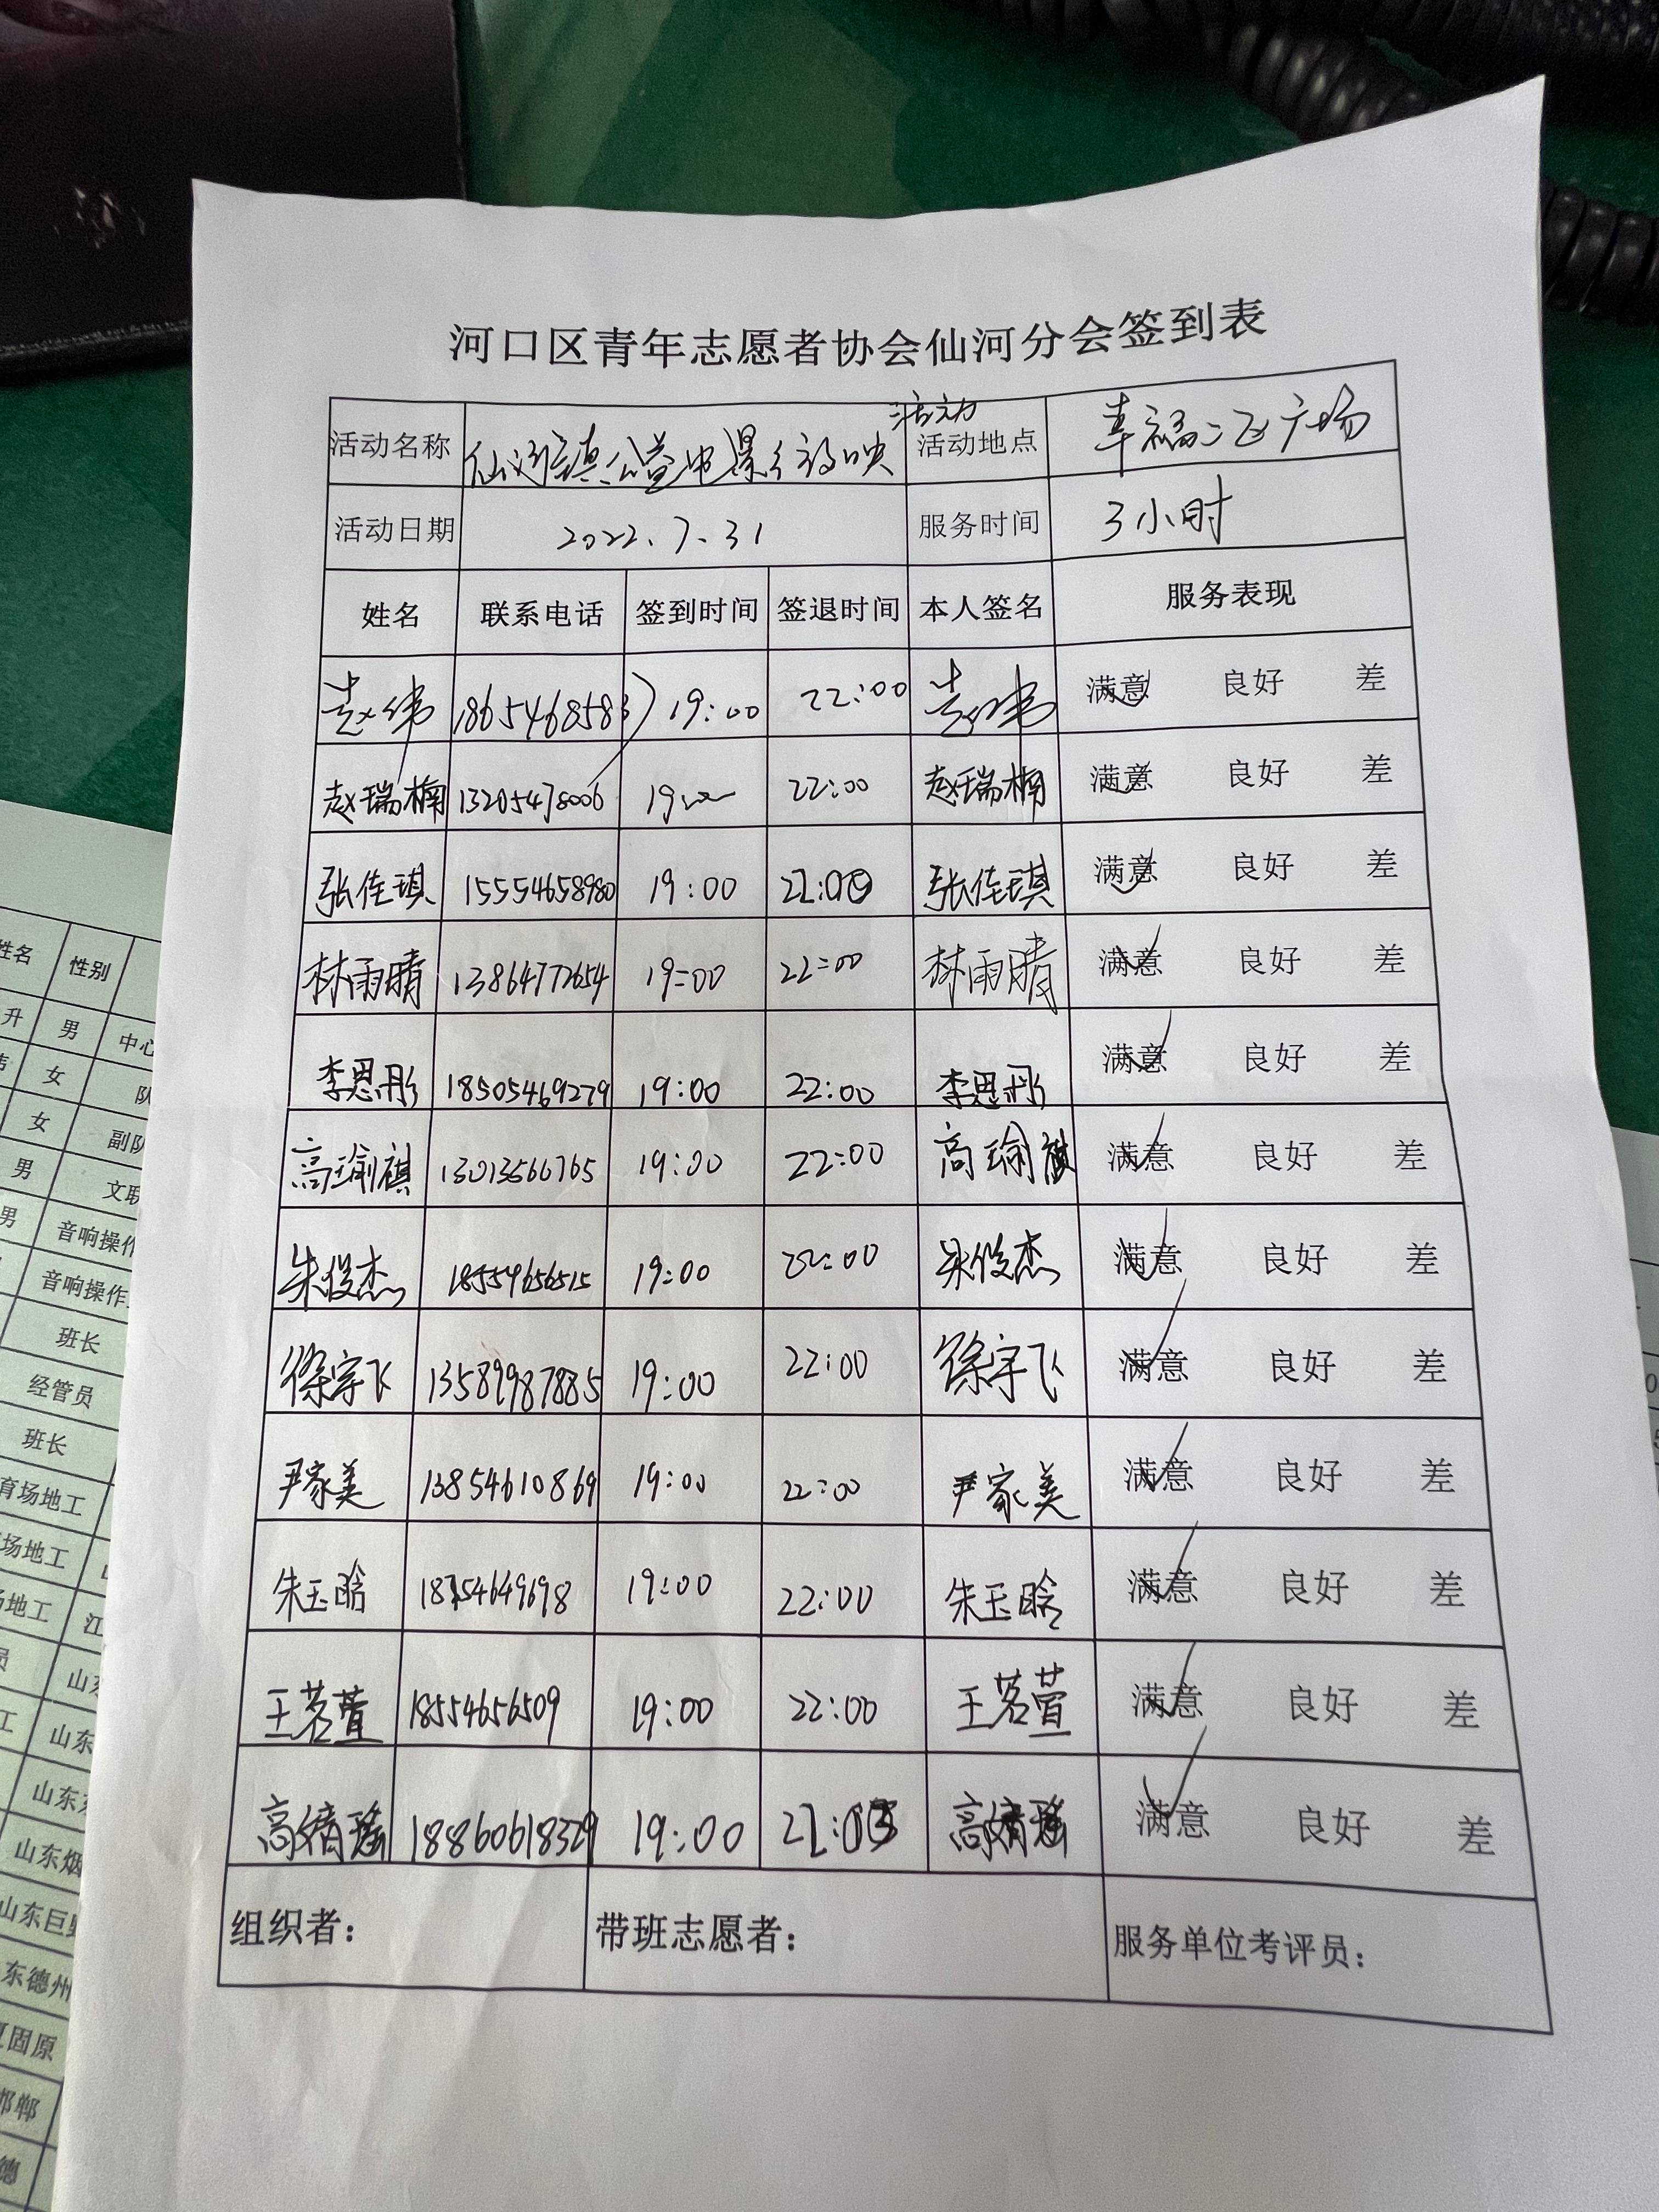 河口区青年志愿者协会仙河分会签到表
活动名称 仙河镇公益电影放映活动 活动地点 幸福二区广场
活动日期 2022.7.31 服务时间 3小时
姓名 联系电话 签到时间 签退时间 本人签名 服务表现
赵伟 18654685837 19:00 22:00 赵伟 满意 良好 差
赵瑞楠 13205478006 19:00 22:00 赵瑞楠 满意 良好 差
张佳琪 15554658980 19:00 22:00 张佳琪 满意 良好 差
林雨晴 13864772654 19:00 22:00 林雨晴 满意 良好 差
李思彤 18505469279 19:00 22:00 李思彤 满意 良好 差
高瑜祺 13013566765 19:00 22:00 高瑜祺 满意 良好 差
朱俊杰 18554656515 19:00 22:00 朱俊杰 满意 良好 差
徐宇飞 13589987885 19:00 22:00 徐宇飞 满意 良好 差
尹家美 13854610869 19:00 22:00 尹家美 满意 良好 差
朱玉晗 18754649698 19:00 22:00 朱玉晗 满意 良好 差
王茗萱 18554656509 19:00 22:00 王茗萱 满意 良好 差
高婧瑶 18860618329 19:00 22:00 高婧瑶 满意 良好 差
组织者: 带班志愿者: 服务单位考评员:
姓名 性别
升 男 中心
女 队
女 副队
男 文联
男 音响操作
音响操作
班长
经管员
班长
育场地工
场地工
场地工 江
员 山东
工 山东
山东
山东烟
山东巨野
东德州
固原
邯郸
德